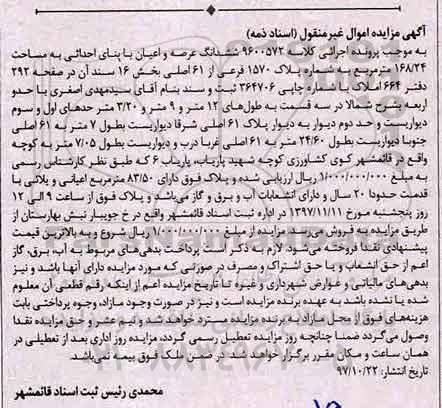 آگهی مزایده اموال غیرمنقول (اسناد ذمه)
به موجب پرونده اجرائی کلاسه ۹۶۰۰۵۷۲ ششدانگ عرصه و اعیان با بنای احداثی به مساحت
۱۶۸/۲۴ مترمربع به شماره پلاک ۱۵۷۰ فرعی از ۶۱ اصلی بخش ۱۶ سند آن در صفحه ۲۹۲
دفتر ۶۶۴ املاک با شماره چاپی ۳۶۴۷۰۶ ثبت و سند بنام آقای سیدمهدی اصغری با حدو
اربعه بشرح شمالا در سه قسمت به طول‌های ۱۲ متر و ۹ متر و ۳/۲۰ متر حدهای اول و سوم
دیواریست و حد دوم دیوار به دیوار پلاک ۶۱ اصلی شرقا دیواریست بطول ۷ متر به ۶۱ اصلی
جنوبا دیواریست بطول ۲۴/۶۰ متر به ۶۱ اصلی غربا درب و دیواریست بطول ۷/۰۵ متر به کوچه
واقع در قائمشهر کوی کشاورزی کوچه شهید پاریاب، پاریاب ۶ که طبق نظر کارشناس رسمی
به مبلغ ۱/۰۰۰/۰۰۰/۰۰۰ ریال ارزیابی شده و پلاک فوق دارای ۸۳/۵۰ مترمربع اعیانی و یلائی با
قدمت حدودا ۲۰ سال و دارای انشعابات آب و برق و گاز می‌باشد و پلاک فوق از ساعت ۹ الی ۱۲
روز پنجشنبه مورخ ۱۳۹۷/۱۱/۱۱ در اداره ثبت اسناد قائمشهر واقع در خ جویبار نبش بهارستان از
طریق مزایده به فروش می‌رسد مزایده از مبلغ ۱/۰۰۰/۰۰۰/۰۰۰ ریال شروع و به بالاترین قیمت
پیشنهادی نقدا فروخته می‌شود. لازم به ذکر است پرداخت بدهی‌های مربوط به آب، برق، گاز
اعم از حق انشعاب و یا حق اشتراک و مصرف در صورتی که مورد مزایده دارای آنها باشد و نیز
بدهی‌های مالیاتی و عوارض شهرداری و غیره تا تاریخ مزایده اعم از اینکه رقم قطعی آن معلوم
شده یا نشده باشد به عهده برنده مزایده است و نیز در صورت وجود مازاد، وجوه پرداختی بابت
هزینه‌های فوق از محل مازاد به برنده مزایده مسترد خواهد شد و نیم عشر و حق مزایده نقدا
وصول می‌گردد ضمنا چنانچه روز مزایده تعطیل رسمی گردد، مزایده روز اداری بعد از تعطیلی در
همان ساعت و مکان مقرر برگزار خواهد شد. در ضمن ملک فوق بیمه نمی‌باشد.
تاریخ انتشار: ۹۷/۱۰/۲۲
محمدی رئیس ثبت اسناد قائمشهر